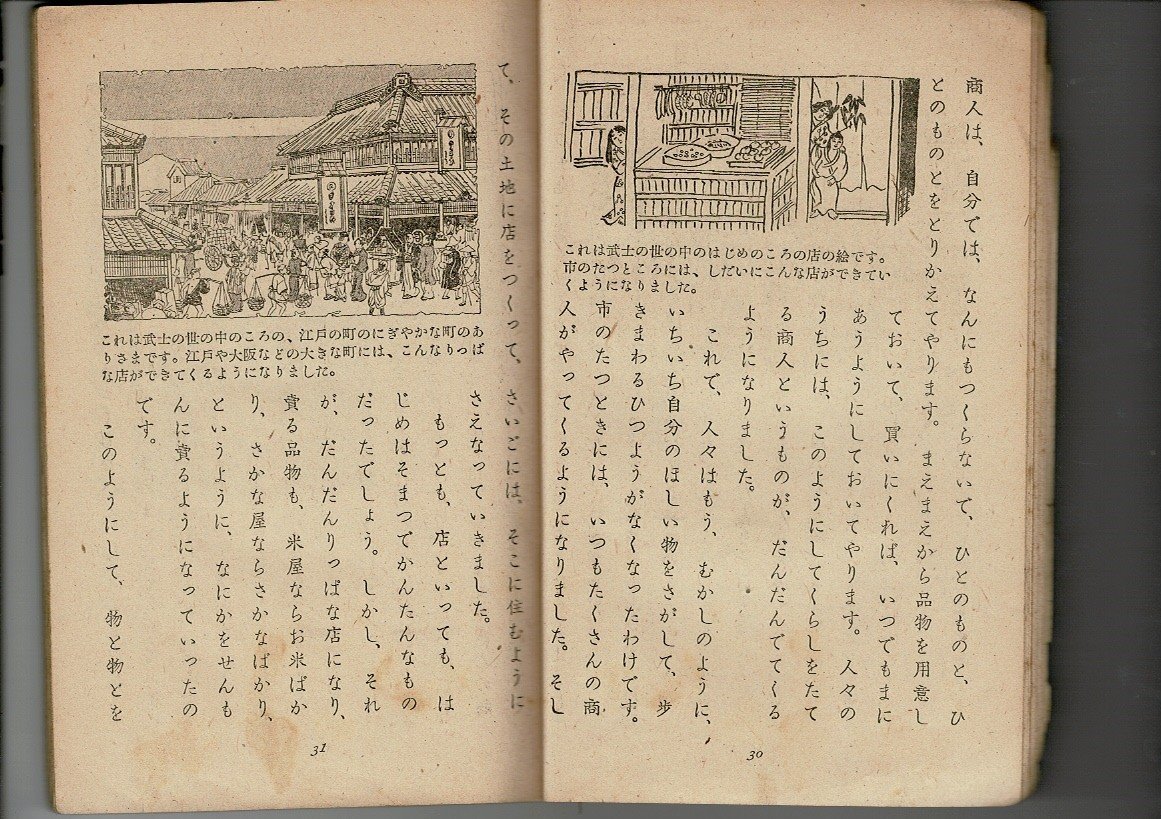 商人は、自分では、なんにもつくらないで、ひとのものと、ひ
とのものとをとりかえてやります。まえまえから品物を用意し
ておいて、買いにくれば、いつでもまに
あうようにしておいてやります。人々の
うちには、このようにしてくらしをたて
る商人というものが、だんだんでてくる
ようになりました。
これで、人々はもう、むかしのように、
いちいち自分のほしい物をさがして、歩
きまわるひつようがなくなったわけです。
市のたつときには、いつもたくさんの商
人がやってくるようになりました。そし
これは武士の世の中のはじめのころの店の絵です。
市のたつところには、しだいにこんな店ができてい
くようになりました。
30
て、その土地に店をつくって、さいごには、そこに住むように
さえなっていきました。
もっとも、店といっても、は
じめはそまつでかんたんなもの
だったでしょう。しかし、それ
が、だんだんりっぱな店になり、
賣る品物も、米屋ならお米ばか
り、さかな屋ならさかなばかり、
というように、なにかをせんも
んに賣るようになっていったの
です。
このようにして、物と物とを
これは武士の世の中のころの、江戸の町のにぎやかな町のあ
りさまです。江戸や大阪などの大きな町には、こんなりっぱ
な店ができてくるようになりました。
31